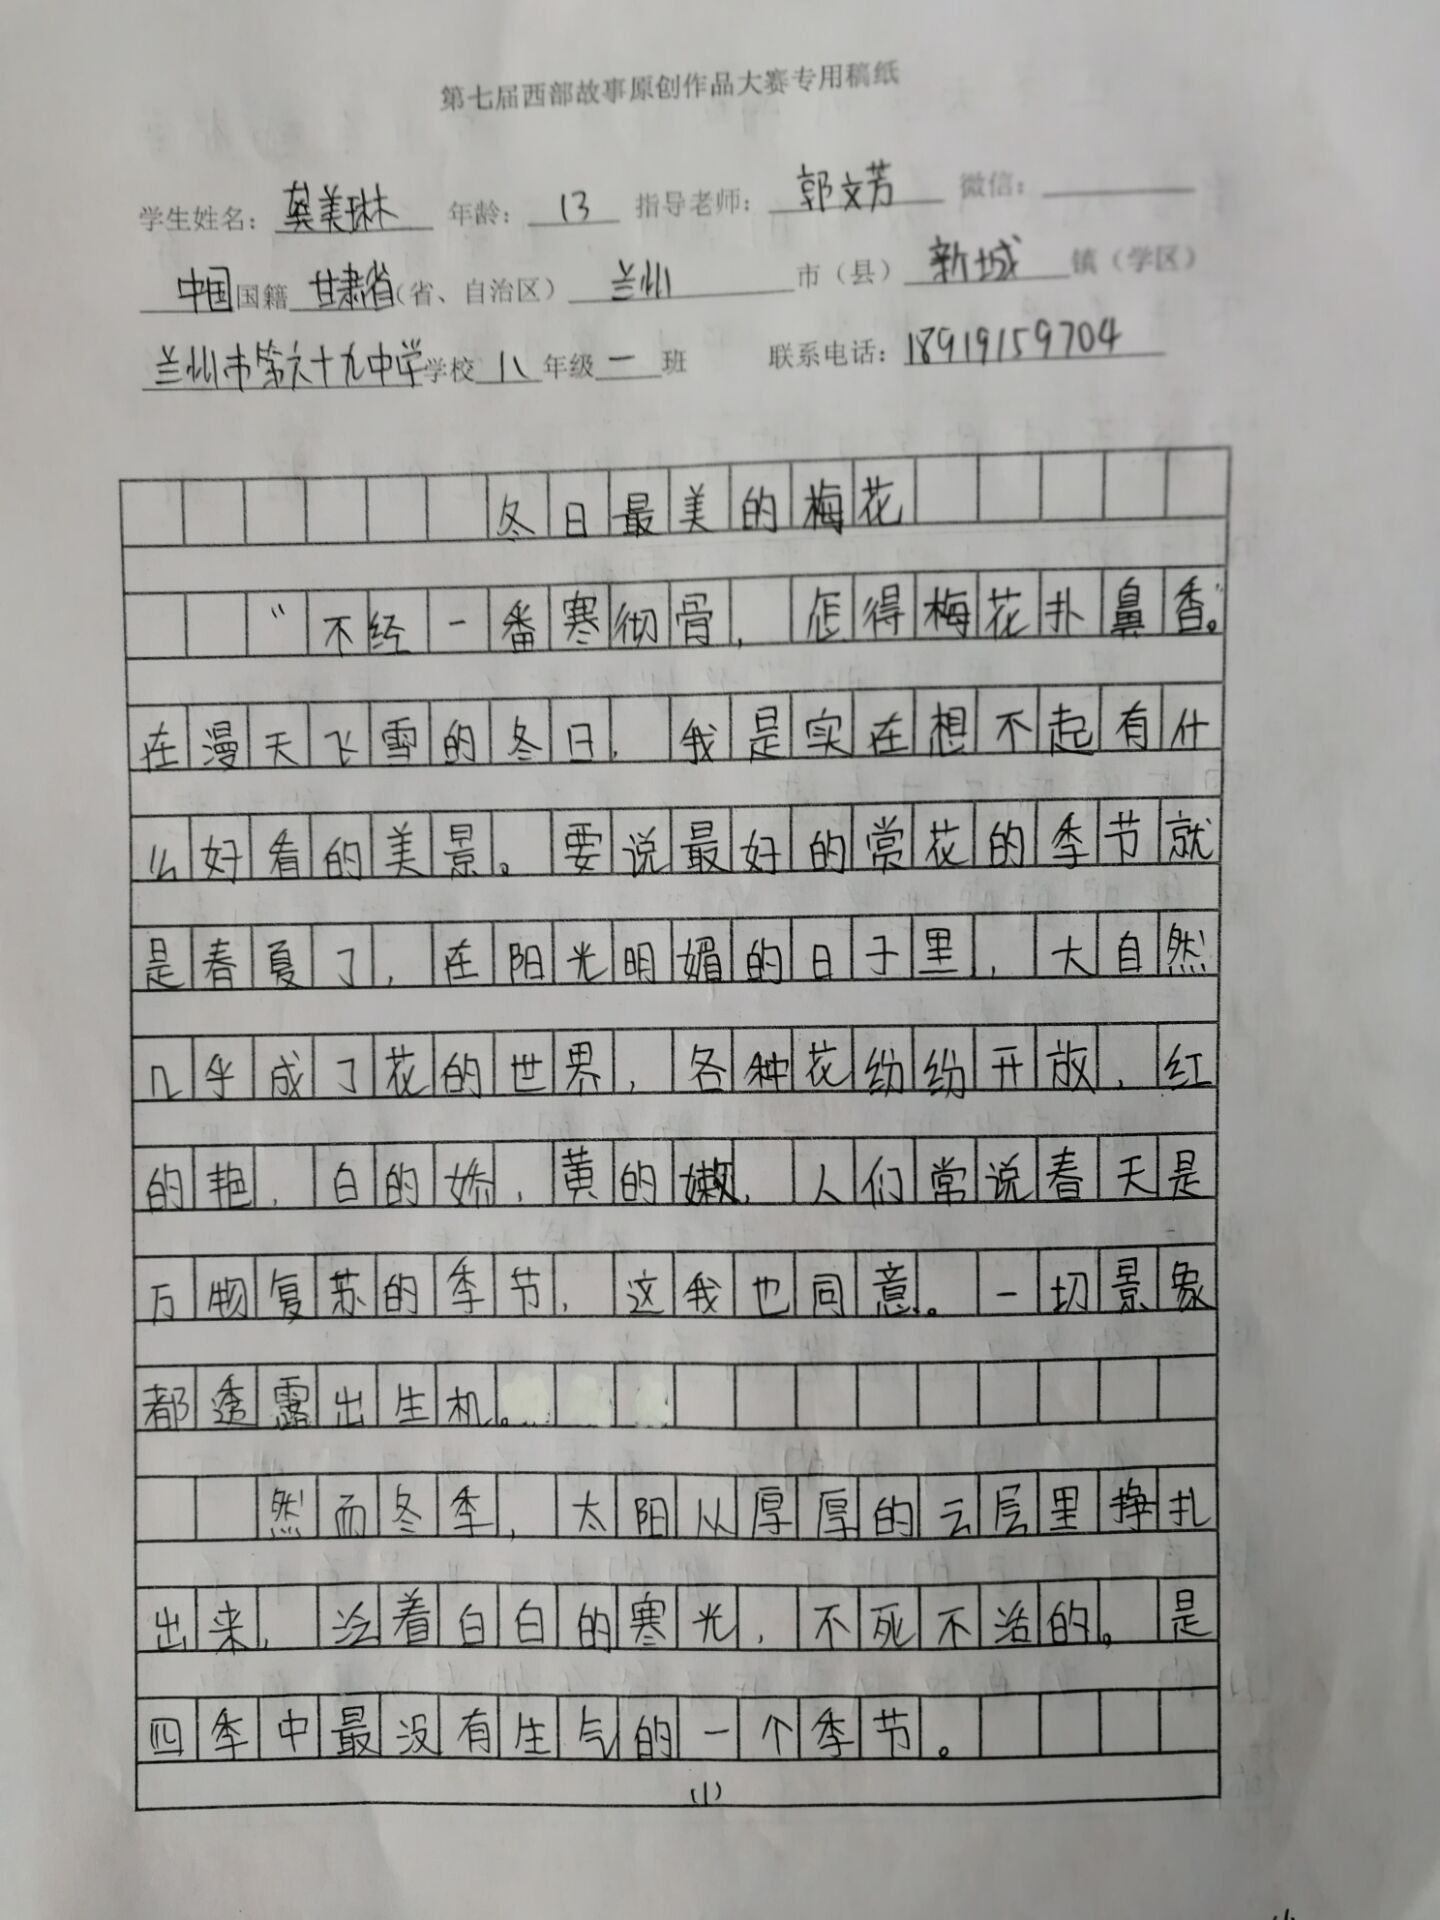 第七届西部故事原创作品大赛专用稿纸
学生姓名：龚美琳 年龄：13 指导老师：郭文芳 微信：
中国国籍 甘肃省（省、自治区）兰州市（县）新城镇（学区）
兰州市第六十九中学学校 八年级一班 联系电话：18919159704
冬日最美的梅花
“不经一番寒彻骨，怎得梅花扑鼻香。”
在漫天飞雪的冬日，我是实在想不起有什
么好看的美景。要说最好的赏花的季节就
是春夏了，在阳光明媚的日子里，大自然
几乎成了花的世界，各种花纷纷开放，红
的艳，白的娇，黄的嫩，人们常说春天是
万物复苏的季节，这我也同意。一切景象
都透露出生机。
然而冬季，太阳从厚厚的云层里挣扎
出来，泛着白白的寒光，不死不活的。是
四季中最没有生气的一个季节。
(1)